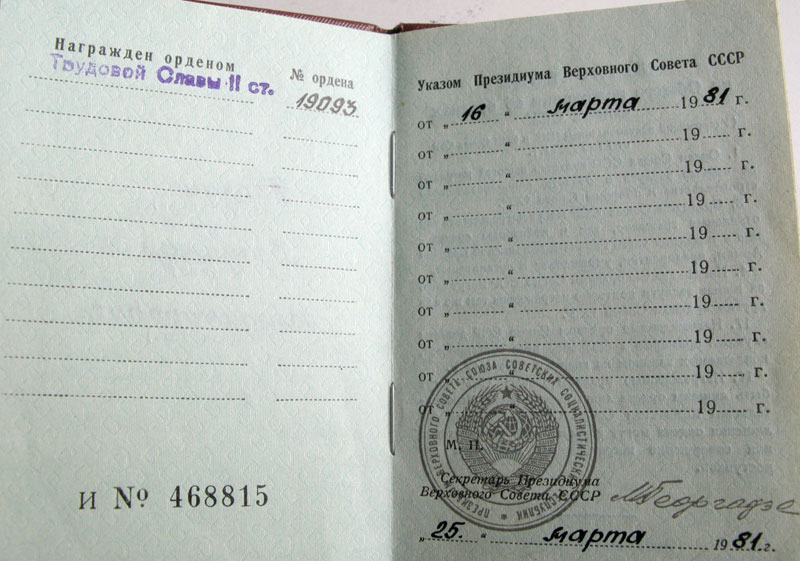 Награжден орденом
Трудовой Славы II ст.
№ ордена
19093
И № 468815
Указом Президиума Верховного Совета СССР
от „ 16 “ марта 1981 г.
от „ “ 19 г.
от „ “ 19 г.
от „ “ 19 г.
от „ “ 19 г.
от „ “ 19 г.
от „ “ 19 г.
от „ “ 19 г.
от „ “ 19 г.
от „ “ 19 г.
ПРЕЗИДИУМ ВЕРХОВНОГО СОВЕТА СОЮЗА СОВЕТСКИХ СОЦИАЛИСТИЧЕСКИХ РЕСПУБЛИК
М. П.
Секретарь Президиума
Верховного Совета СССР
М Георгадзе
„ 25. “ марта 1981 г.